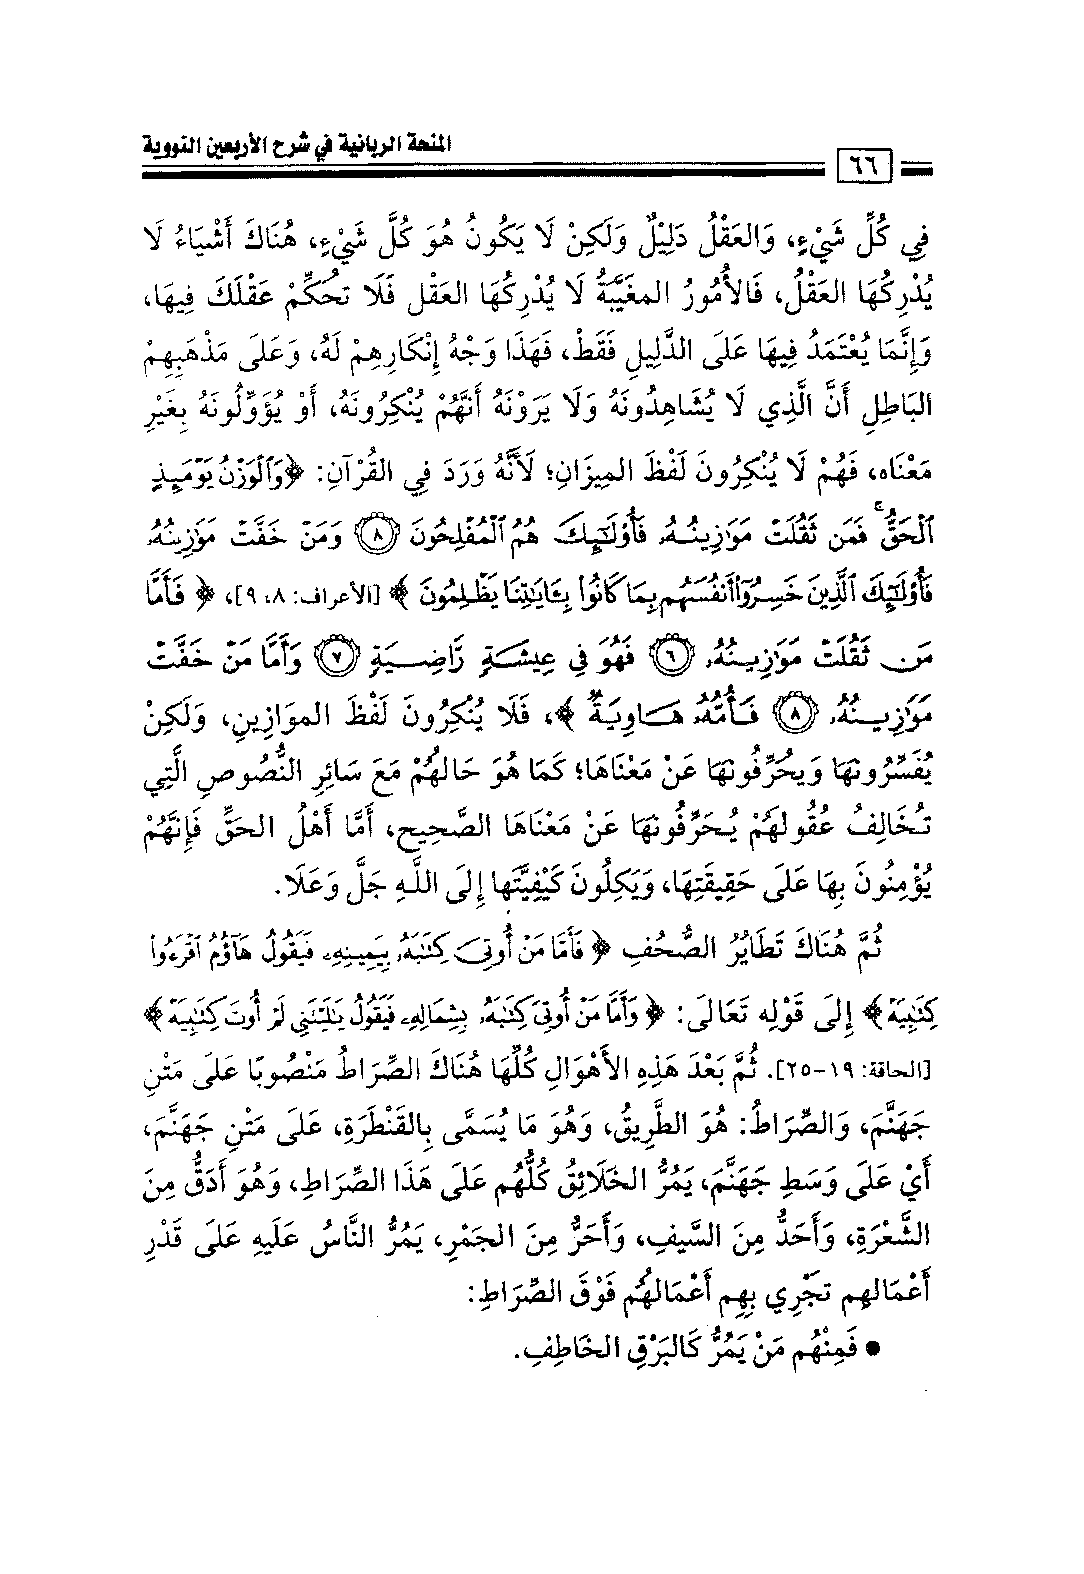 المنحة الربانية في شرح الأربعين النووية
٦٦
فِي كُلِّ شَيْءٍ، وَالعَقْلُ دَلِيْلٌ وَلَكِنْ لَا يَكُونُ هُوَ كُلَّ شَيْءٍ، هُنَاكَ أَشْيَاءُ لَا
يُدْرِكُهَا العَقْلُ، فَالأُمُورُ المغَيَّبَةُ لَا يُدْرِكُهَا العَقْل فَلَا تحُكِّمْ عَقْلَكَ فِيهَا،
وَإِنَّمَا يُعْتَمَدُ فِيهَا عَلَى الدَّلِيلِ فَقَطْ، فَهَذَا وَجْهُ إِنْكَارِهِمْ لَهُ، وَعَلَى مَذْهَبِهِمْ
البَاطِلِ أَنَّ الَّذِي لَا يُشَاهِدُونَهُ وَلَا يَرَوْنَهُ أَنَّهُمْ يُنْكِرُونَهُ، أَوْ يُؤَوِّلُونَهُ بِغَيْرِ
مَعْنَاه، فَهُمْ لَا يُنْكِرُونَ لَفْظَ الميزَانِ؛ لَأَنَّهُ وَرَدَ فِي القُرْآنِ: ﴿وَٱلْوَزْنُ يَوْمَئِذٍ
ٱلْحَقُّ ۚ فَمَن ثَقُلَتْ مَوَٰزِينُهُۥ فَأُوْلَٰٓئِكَ هُمُ ٱلْمُفْلِحُونَ ٨ وَمَنْ خَفَّتْ مَوَٰزِينُهُۥ
فَأُوْلَٰٓئِكَ ٱلَّذِينَ خَسِرُوٓا۟ أَنفُسَهُم بِمَا كَانُوا۟ بِـَٔايَٰتِنَا يَظْلِمُونَ﴾ [الأعراف: ٨، ٩]، ﴿فَأَمَّا
مَن ثَقُلَتْ مَوَٰزِينُهُۥ ٦ فَهُوَ فِي عِيشَةٍ رَّاضِيَةٍ ٧ وَأَمَّا مَنْ خَفَّتْ
مَوَٰزِينُهُۥ ٨ فَأُمُّهُۥ هَاوِيَةٌ﴾، فَلَا يُنْكِرُونَ لَفْظَ الموَازِينِ، وَلَكِنْ
يُفَسِّرُونهَا وَيحُرِّفُونهَا عَنْ مَعْنَاهَا؛ كَمَا هُوَ حَالهُمْ مَعَ سَائِرِ النُّصُوصِ الَّتِي
تُخَالِفُ عُقُولهُمْ يُحَرِّفُونهَا عَنْ مَعْنَاهَا الصَّحِيحِ، أَمَّا أَهْلُ الحَقِّ فَإِنَّهُمْ
يُؤْمِنُونَ بِهَا عَلَى حَقِيقَتِهَا، وَيَكِلُونَ كَيْفِيَّتَها إِلَى اللَّهِ جَلَّ وَعَلَا.
ثُمَّ هُنَاكَ تَطَايُرُ الصُّحُفِ ﴿فَأَمَّا مَنْ أُوتِيَ كِتَٰبَهُۥ بِيَمِينِهِۦ فَيَقُولُ هَآؤُمُ ٱقْرَءُوا۟
كِتَٰبِيَهْ﴾ إِلَى قَوْلِه تَعَالَى: ﴿وَأَمَّا مَنْ أُوتِيَ كِتَٰبَهُۥ بِشِمَالِهِۦ فَيَقُولُ يَٰلَيْتَنِي لَمْ أُوتَ كِتَٰبِيَهْ﴾
[الحاقة: ١٩-٢٥]. ثُمَّ بَعْدَ هَذِهِ الأَهْوَالِ كُلِّهَا هُنَاكَ الصِّرَاطُ مَنْصُوبًا عَلَى مَتْنِ
جَهَنَّمَ، وَالصِّرَاطُ: هُوَ الطَّرِيقُ، وَهُوَ مَا يُسَمَّى بِالقَنْطَرَةِ، عَلَى مَتْنِ جَهَنَّمَ،
أَيْ عَلَى وَسَطِ جَهَنَّمَ، يَمُرُّ الخَلَائِقُ كُلُّهُم عَلَى هَذَا الصِّرَاطِ، وَهُوَ أَدَقُّ مِنَ
الشَّعْرَةِ، وَأَحَدُّ مِنَ السَّيفِ، وَأَحَرُّ مِنَ الجَمْرِ، يَمُرُّ النَّاسُ عَلَيهِ عَلَى قَدْرِ
أَعْمَالهِم تجْرِي بِهِم أَعْمَالهُم فَوْقَ الصِّرَاطِ:
● فَمِنْهُم مَنْ يَمُرُّ كَالبَرْقِ الخَاطِفِ.